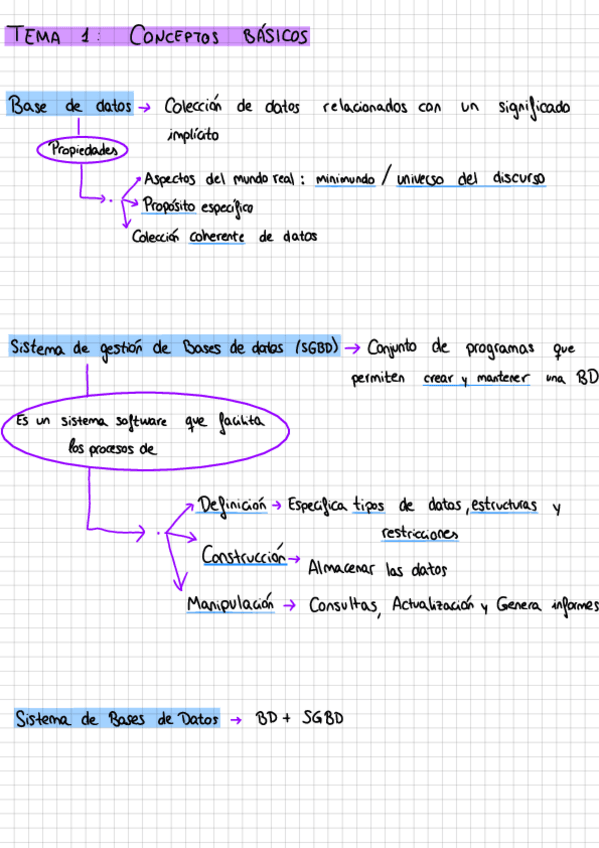 TEMA 1: CONCEPTOS BÁSICOS
Base de datos → Colección de datos relacionados con un significado
implícito
Propiedades
Aspectos del mundo real: minimundo / universo del discurso
Propósito específico
Colección coherente de datos
Sistema de gestión de Bases de datos (SGBD) → Conjunto de programas que
permiten crear y mantener una BD
Es un sistema software que facilita
los procesos de
Definición → Especifica tipos de datos, estructuras y
restricciones
Construcción →
Almacenar los datos
Manipulación → Consultas, Actualización y Genera informes
Sistema de Bases de Datos → BD + SGBD